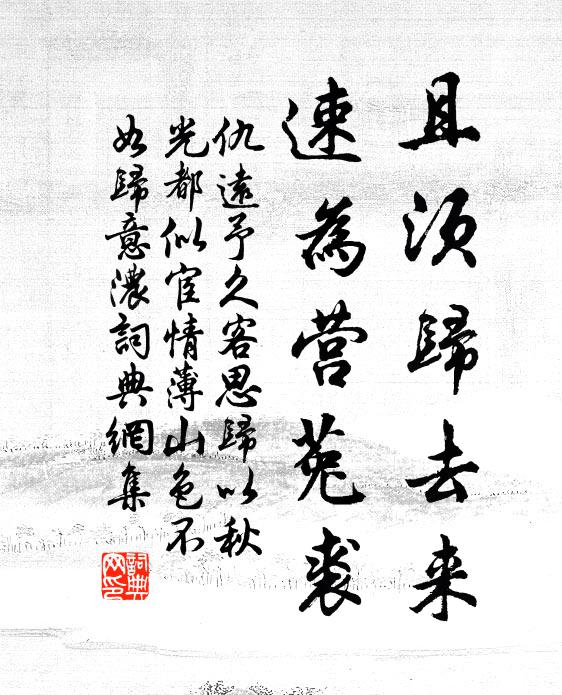 且须歸去来
速為营菟裘
仇遠予久客思歸以秋
光都似宦情薄山色不
如歸意濃詞典網集
詞典
网印